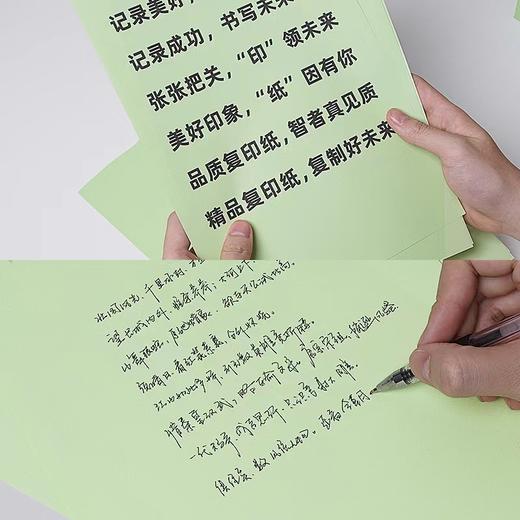 记录美好，
记录成功，书写未来
张张把关，“印”领未来
美好印象，“纸”因有你
品质复印纸，智者真见质
精品复印纸，复制好未来
北国风光，千里冰封，
望长城内外，惟余莽莽；大河上下
山舞银蛇，原驰蜡象，欲与天公试比高。
须晴日，看红装素裹，分外妖娆。
江山如此多娇，引无数英雄竞折腰。
惜秦皇汉武，略输文采。唐宗宋祖，稍逊风骚
一代天骄，成吉思汗，只识弯弓射大雕。
俱往矣，数风流人物，还看今朝